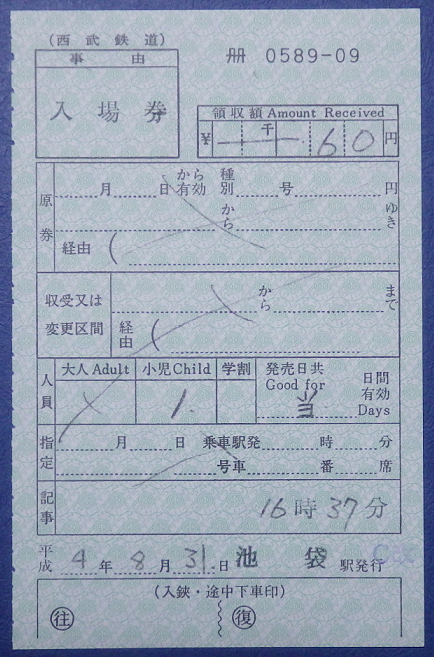 (西武鉄道)
事由
入場券
冊 0589-09
領収額 Amount Received
千
¥ 60円
原券
月 日から有効 種別 号 円
から ゆき
経由 (
収受又は変更区間
から まで
経由 (
人員
大人 Adult 小児 Child 学割 発売日共 Good for 日間有効 Days
1. 当
指定
月 日 乗車駅発 時 分
号車 番 席
記事
16時37分
平成 4年 8月 31日 池袋 駅発行
(入鋏・途中下車印)
往 復